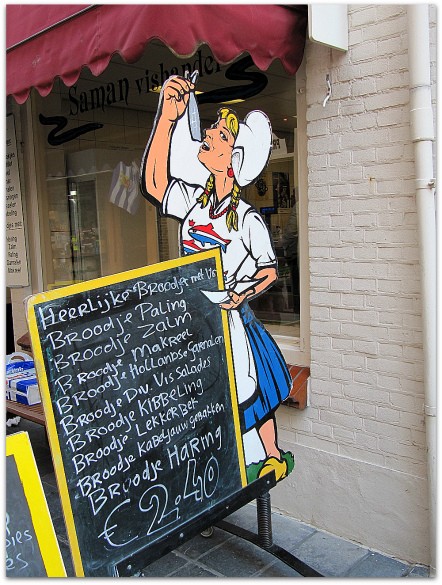 Saman vishandel
Heerlijke Broodjes met Vis
Broodje Paling
Broodje Zalm
Broodje Makreel
Broodje Hollandse Garnalen
Broodje Div. Vis Salades
Broodje Kibbeling
Broodje Lekkerbek
Broodje Kabeljauw gebakken
Broodje Haring
€ 2.40